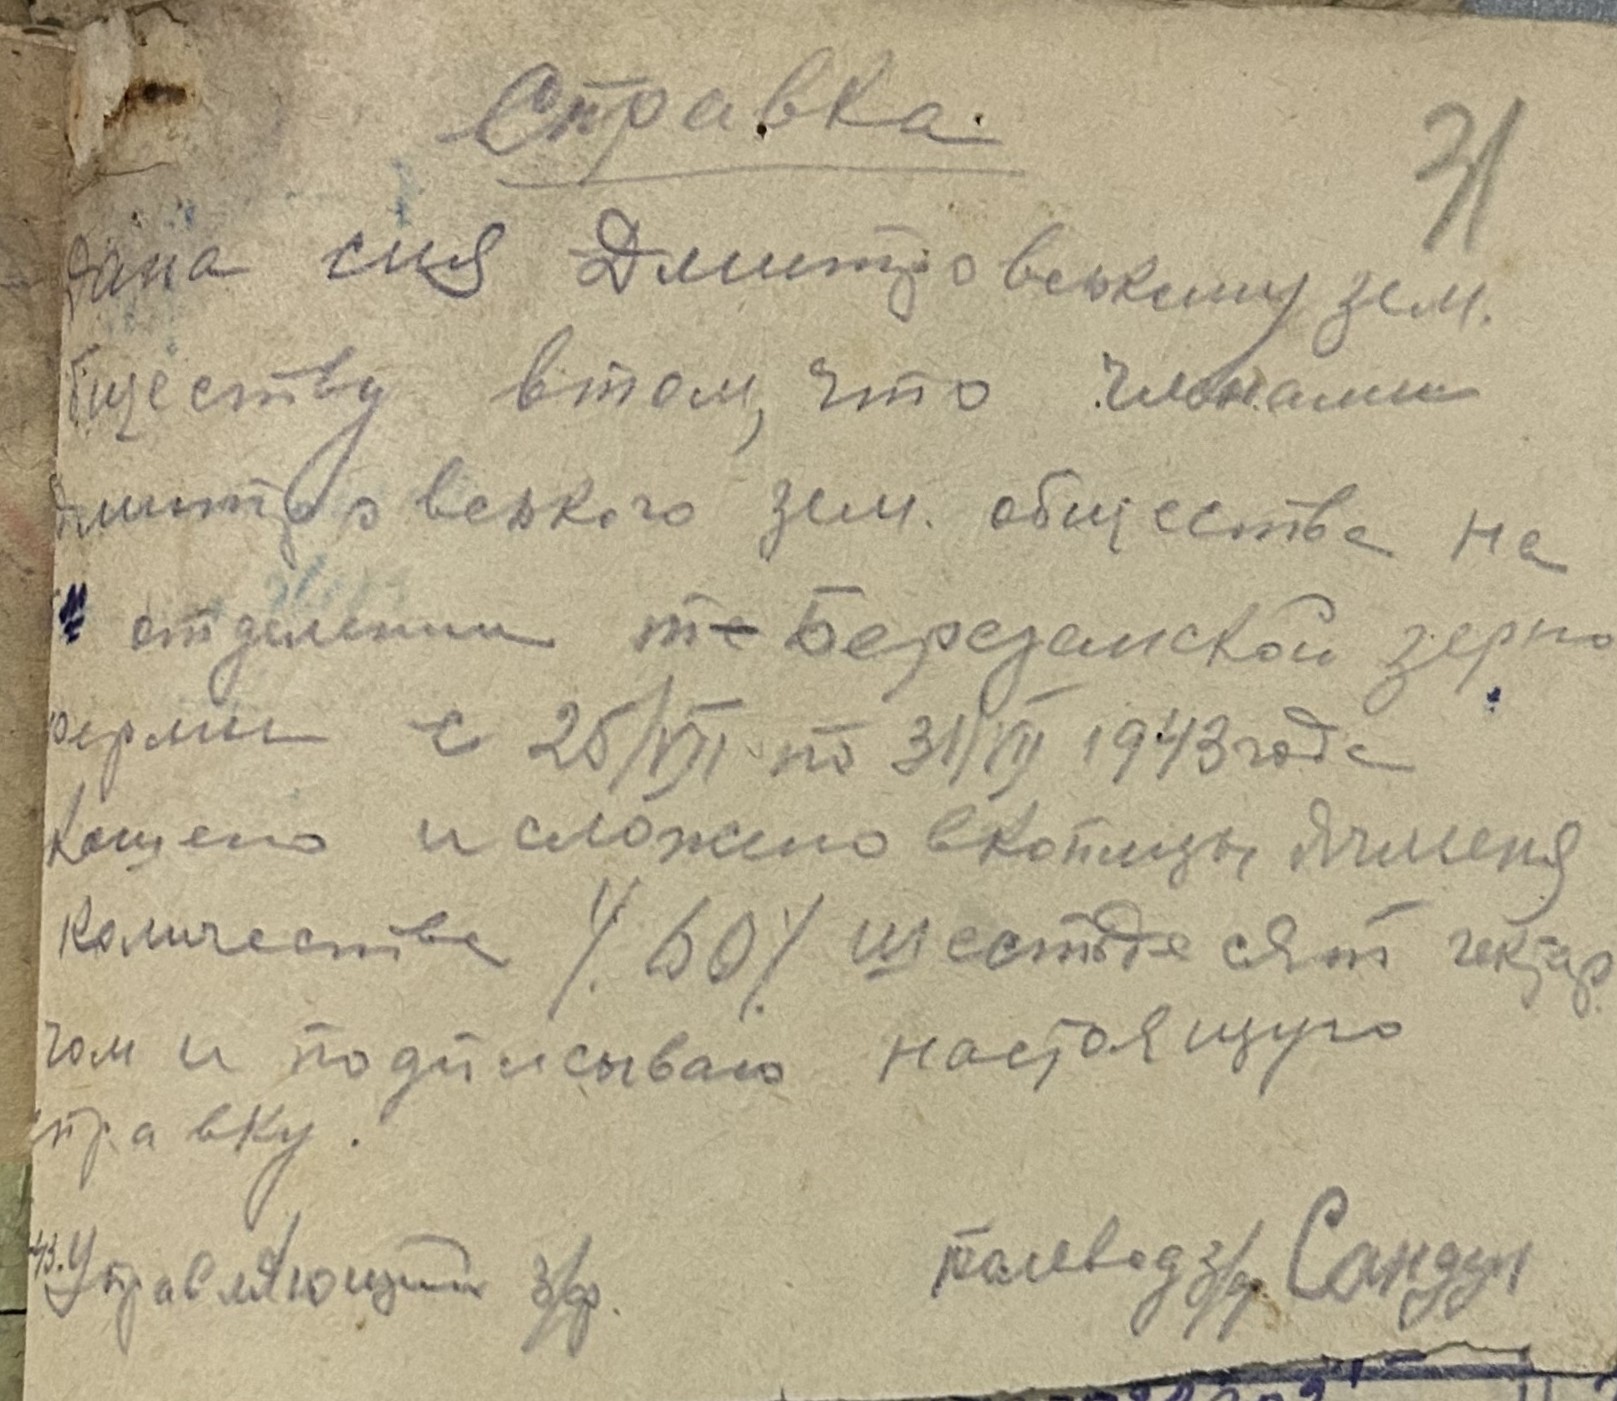 Справка.
31
дана сия Дмитровенькому зем.
бществу в том, что членами
дмитровенького зем. общества на
отделении Березанской зерно
ферми с 25/VII по 31/VII 1943 года
кошено и сложено в копицы ячменя
количестве /.60./ шестьдесят гектар
чом и подписываю настоящую
правку.
43. Управляющий з/ф. полевод з/ф Сандул